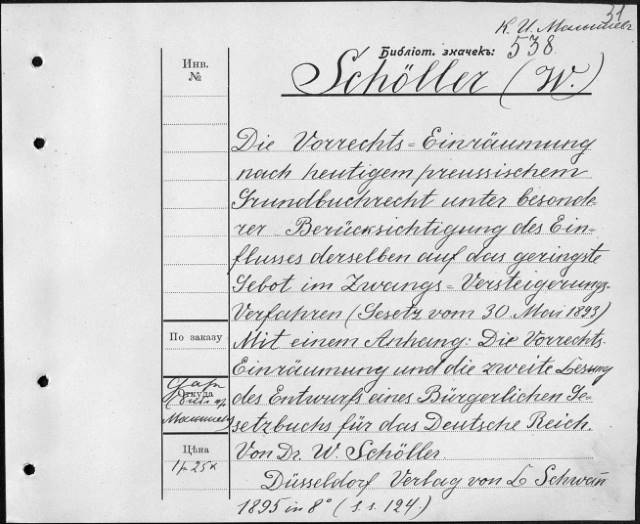 31
К. И. Малышевъ
Библіот. значекъ: 538
Schöller (W.)
Инв.
№
Die Vorrechts=Einräumung
nach heutigem preussischem
Grundbuchrecht unter besonde-
rer Berücksichtigung des Ein-
flusses derselben auf das geringste
Gebot im Zwangs=Versteigerungs-
Verfahren (Gesetz vom 30 Mai 1893)
По заказу
Mit einem Anhang: Die Vorrechts-
Einräumung und die zweite Lesung
Откуда
Малышев
des Entwurfs eines Bürgerlichen Ge-
setzbuchs für das Deutsche Reich.
Цѣна
1 р 25 к
Von Dr. W. Schöller.
Düsseldorf Verlag von L Schwan̄
1895 in 8° (S.s. 124.)